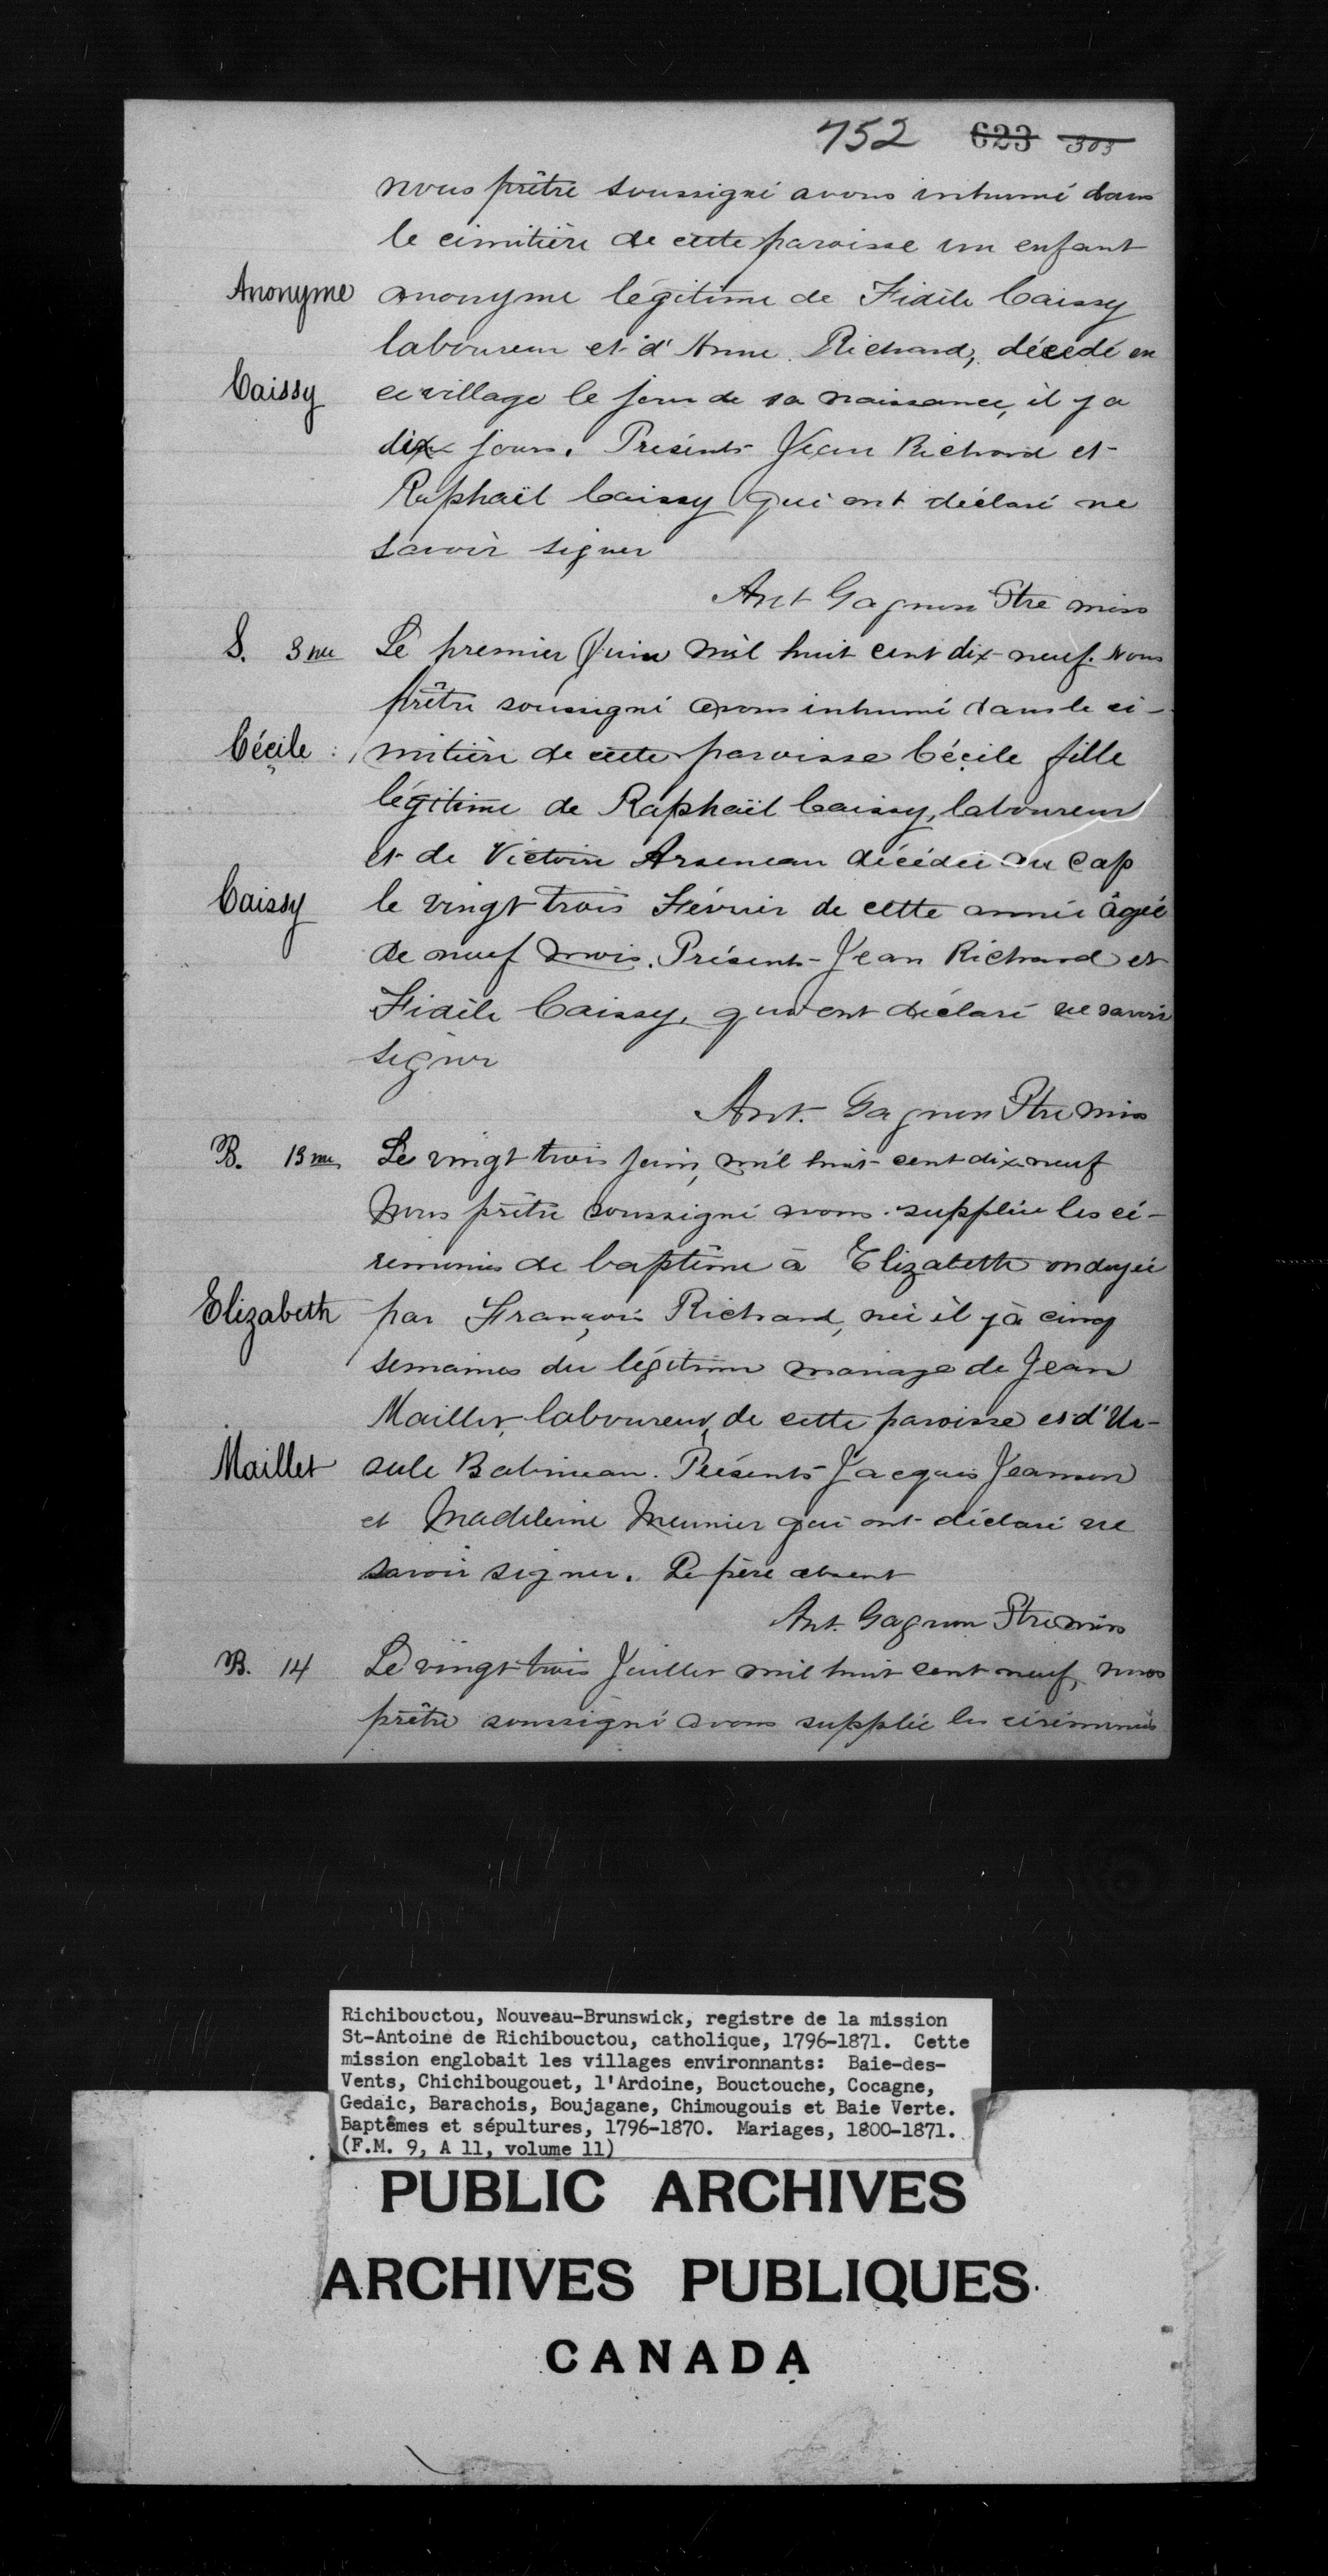 752 623 303
nous prêtre soussigné avons inhumé dans
le cimitière de cette paroisse un enfant
Anonyme anonyme légitime de Fidèle Caissy
laboureur et d'Anne Richard, décédé en
Caissy ce village le jour de sa naissance, il y a
dix jours. Présents Jean Richard et
Raphaël Caissy qui ont déclaré ne
savoir signer
Ant Gagnon Ptre miss
S. 3me Le premier Juin mil huit cent dix-neuf. Nous
prêtre soussigné avons inhumé dans le ci-
Cécile mitière de cette paroisse Cécile fille
légitime de Raphaël Caissy, laboureur
et de Victoire Arseneau décédée au Cap
Caissy le vingt trois Février de cette année âgée
de neuf mois. Présents Jean Richard et
Fidèle Caissy, qui ont déclaré ne savoir
signer
Ant. Gagnon Ptre Miss
B. 13me Le vingt trois juin, mil huit cent dix neuf
Nous prêtre soussigné avons suppléé les cé-
rémonies de baptême à Elizabeth ondoyée
Elizabeth par François Richard, née il y a cinq
semaines du légitime mariage de Jean
Maillet, laboureur, de cette paroisse et d'Ur-
Maillet sule Babineau. Présents Jacques Jeanson
et Madeleine Meunier qui ont déclaré ne
savoir signer. Le père absent
Ant. Gagnon Ptre miss
B. 14 Le vingt trois Juillet mil huit cent neuf, nous
prêtre soussigné avons suppléé les cérémonies
Richibouctou, Nouveau-Brunswick, registre de la mission
St-Antoine de Richibouctou, catholique, 1796-1871. Cette
mission englobait les villages environnants: Baie-des-
Vents, Chichibougouet, l'Ardoine, Bouctouche, Cocagne,
Gedaic, Barachois, Boujagane, Chimougouis et Baie Verte.
Baptêmes et sépultures, 1796-1870. Mariages, 1800-1871.
(F.M. 9, A 11, volume 11)
PUBLIC ARCHIVES
ARCHIVES PUBLIQUES
CANADA